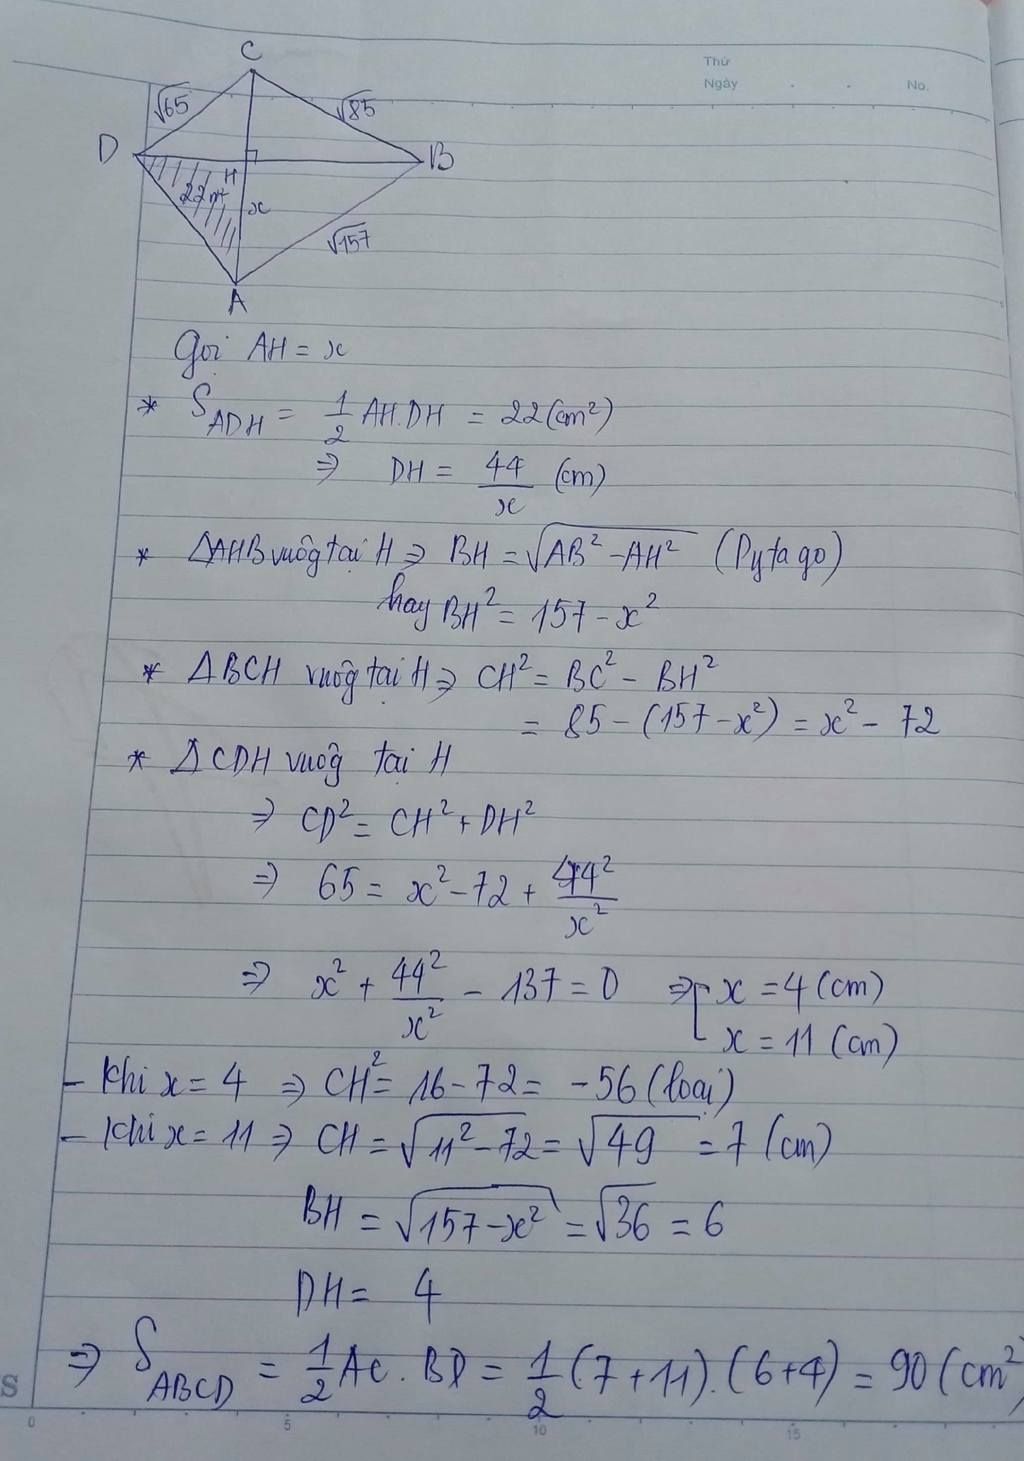 Thứ
Ngày No.
C
√65 √85
D B
H
22m² x
√157
A
Gọi AH = x
* S_ADH = 1/2 AH.DH = 22 (cm²)
⇒ DH = 44/x (cm)
* ΔAHB vuôg tại H ⇒ BH = √(AB² - AH²) (Pytago)
hay BH² = 157 - x²
* ΔBCH vuôg tại H ⇒ CH² = BC² - BH²
= 85 - (157 - x²) = x² - 72
* ΔCDH vuôg tại H
⇒ CD² = CH² + DH²
⇒ 65 = x² - 72 + 44²/x²
⇒ x² + 44²/x² - 137 = 0 ⇒ [ x = 4 (cm)
x = 11 (cm)
- Khi x = 4 ⇒ CH² = 16 - 72 = -56 (loại)
- Khi x = 11 ⇒ CH = √(11² - 72) = √49 = 7 (cm)
BH = √(157 - x²) = √36 = 6
DH = 4
⇒ S_ABCD = 1/2 AC . BD = 1/2 (7 + 11) . (6 + 4) = 90 (cm²
S
0 5 10 15